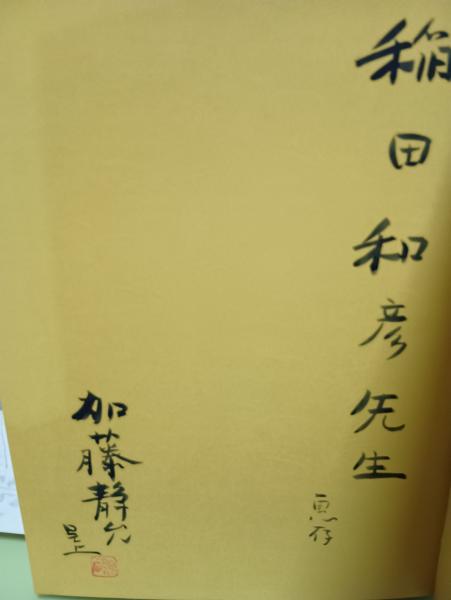 稲田和彦先生
恵存
加藤静允
呈上